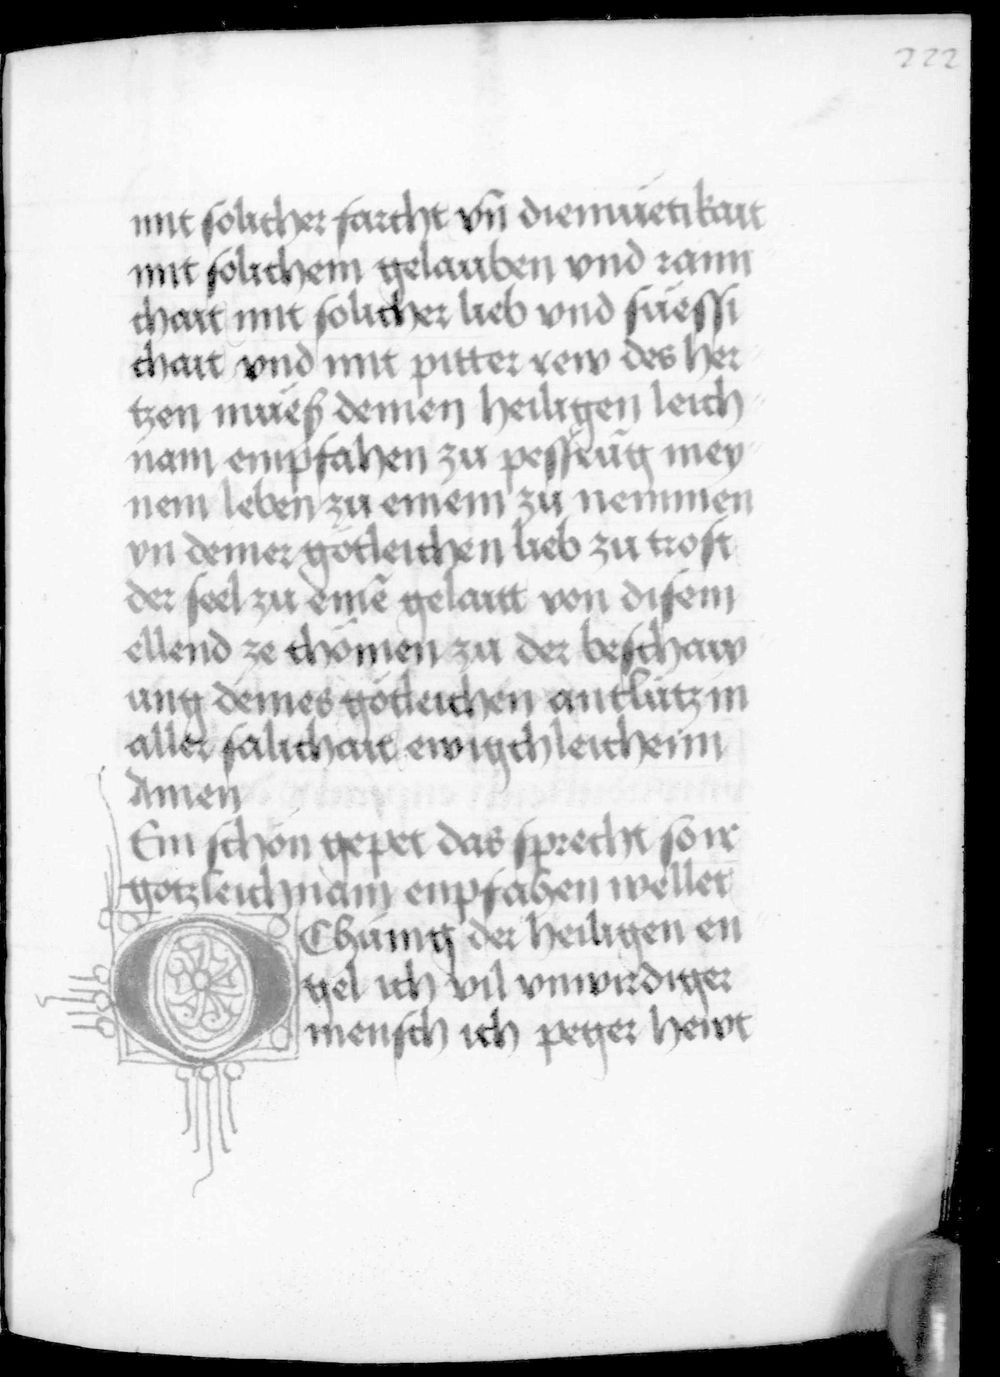 222
mit solicher farcht vn̄ diemuͤetikait
mit solichem gelauben vnd rainn
chait mit solicher lieb vnd suͤessi
chait vnd mit pitter rew des her
tzen muͤeß deinen heiligen leich
nam empfahen zu pessrūg mey
nem leben zu einem zu nemmen
vn deiner götleichen lieb zu trost
der seel zu einē gelaitt von disem
ellend ze chömen zu der beschaw
ung deines götleichen antlütz in
aller sälichait ewigchleichenn
Amen
Ein schön gepet das sprecht so ir
gotzleichnam enpfahen wellet
O Chünig der heiligen en
gel ich vil vnwirdiger
mensch ich peger hewt